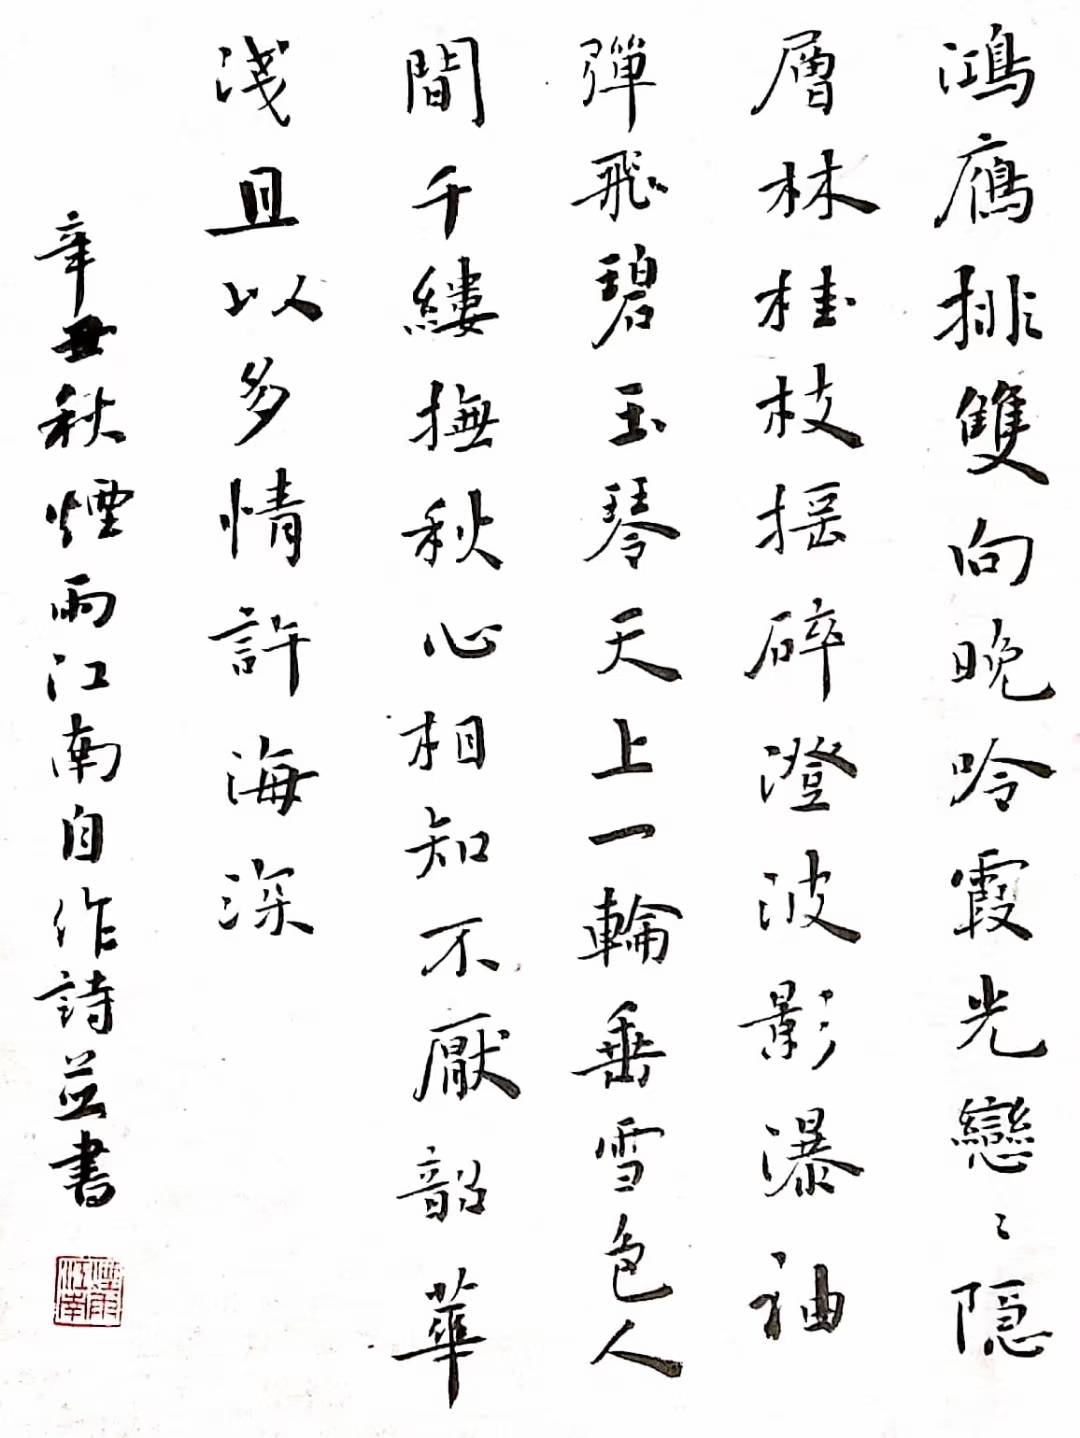 鴻雁排雙向晚吟霞光戀〻隱
層林桂枝摇碎澄波影瀑袖
彈飛碧玉琴天上一輪垂雪色人
間千縷撫秋心相知不厭韶華
淺且以多情許海深
辛丑秋煙雨江南自作詩並書
煙雨江南